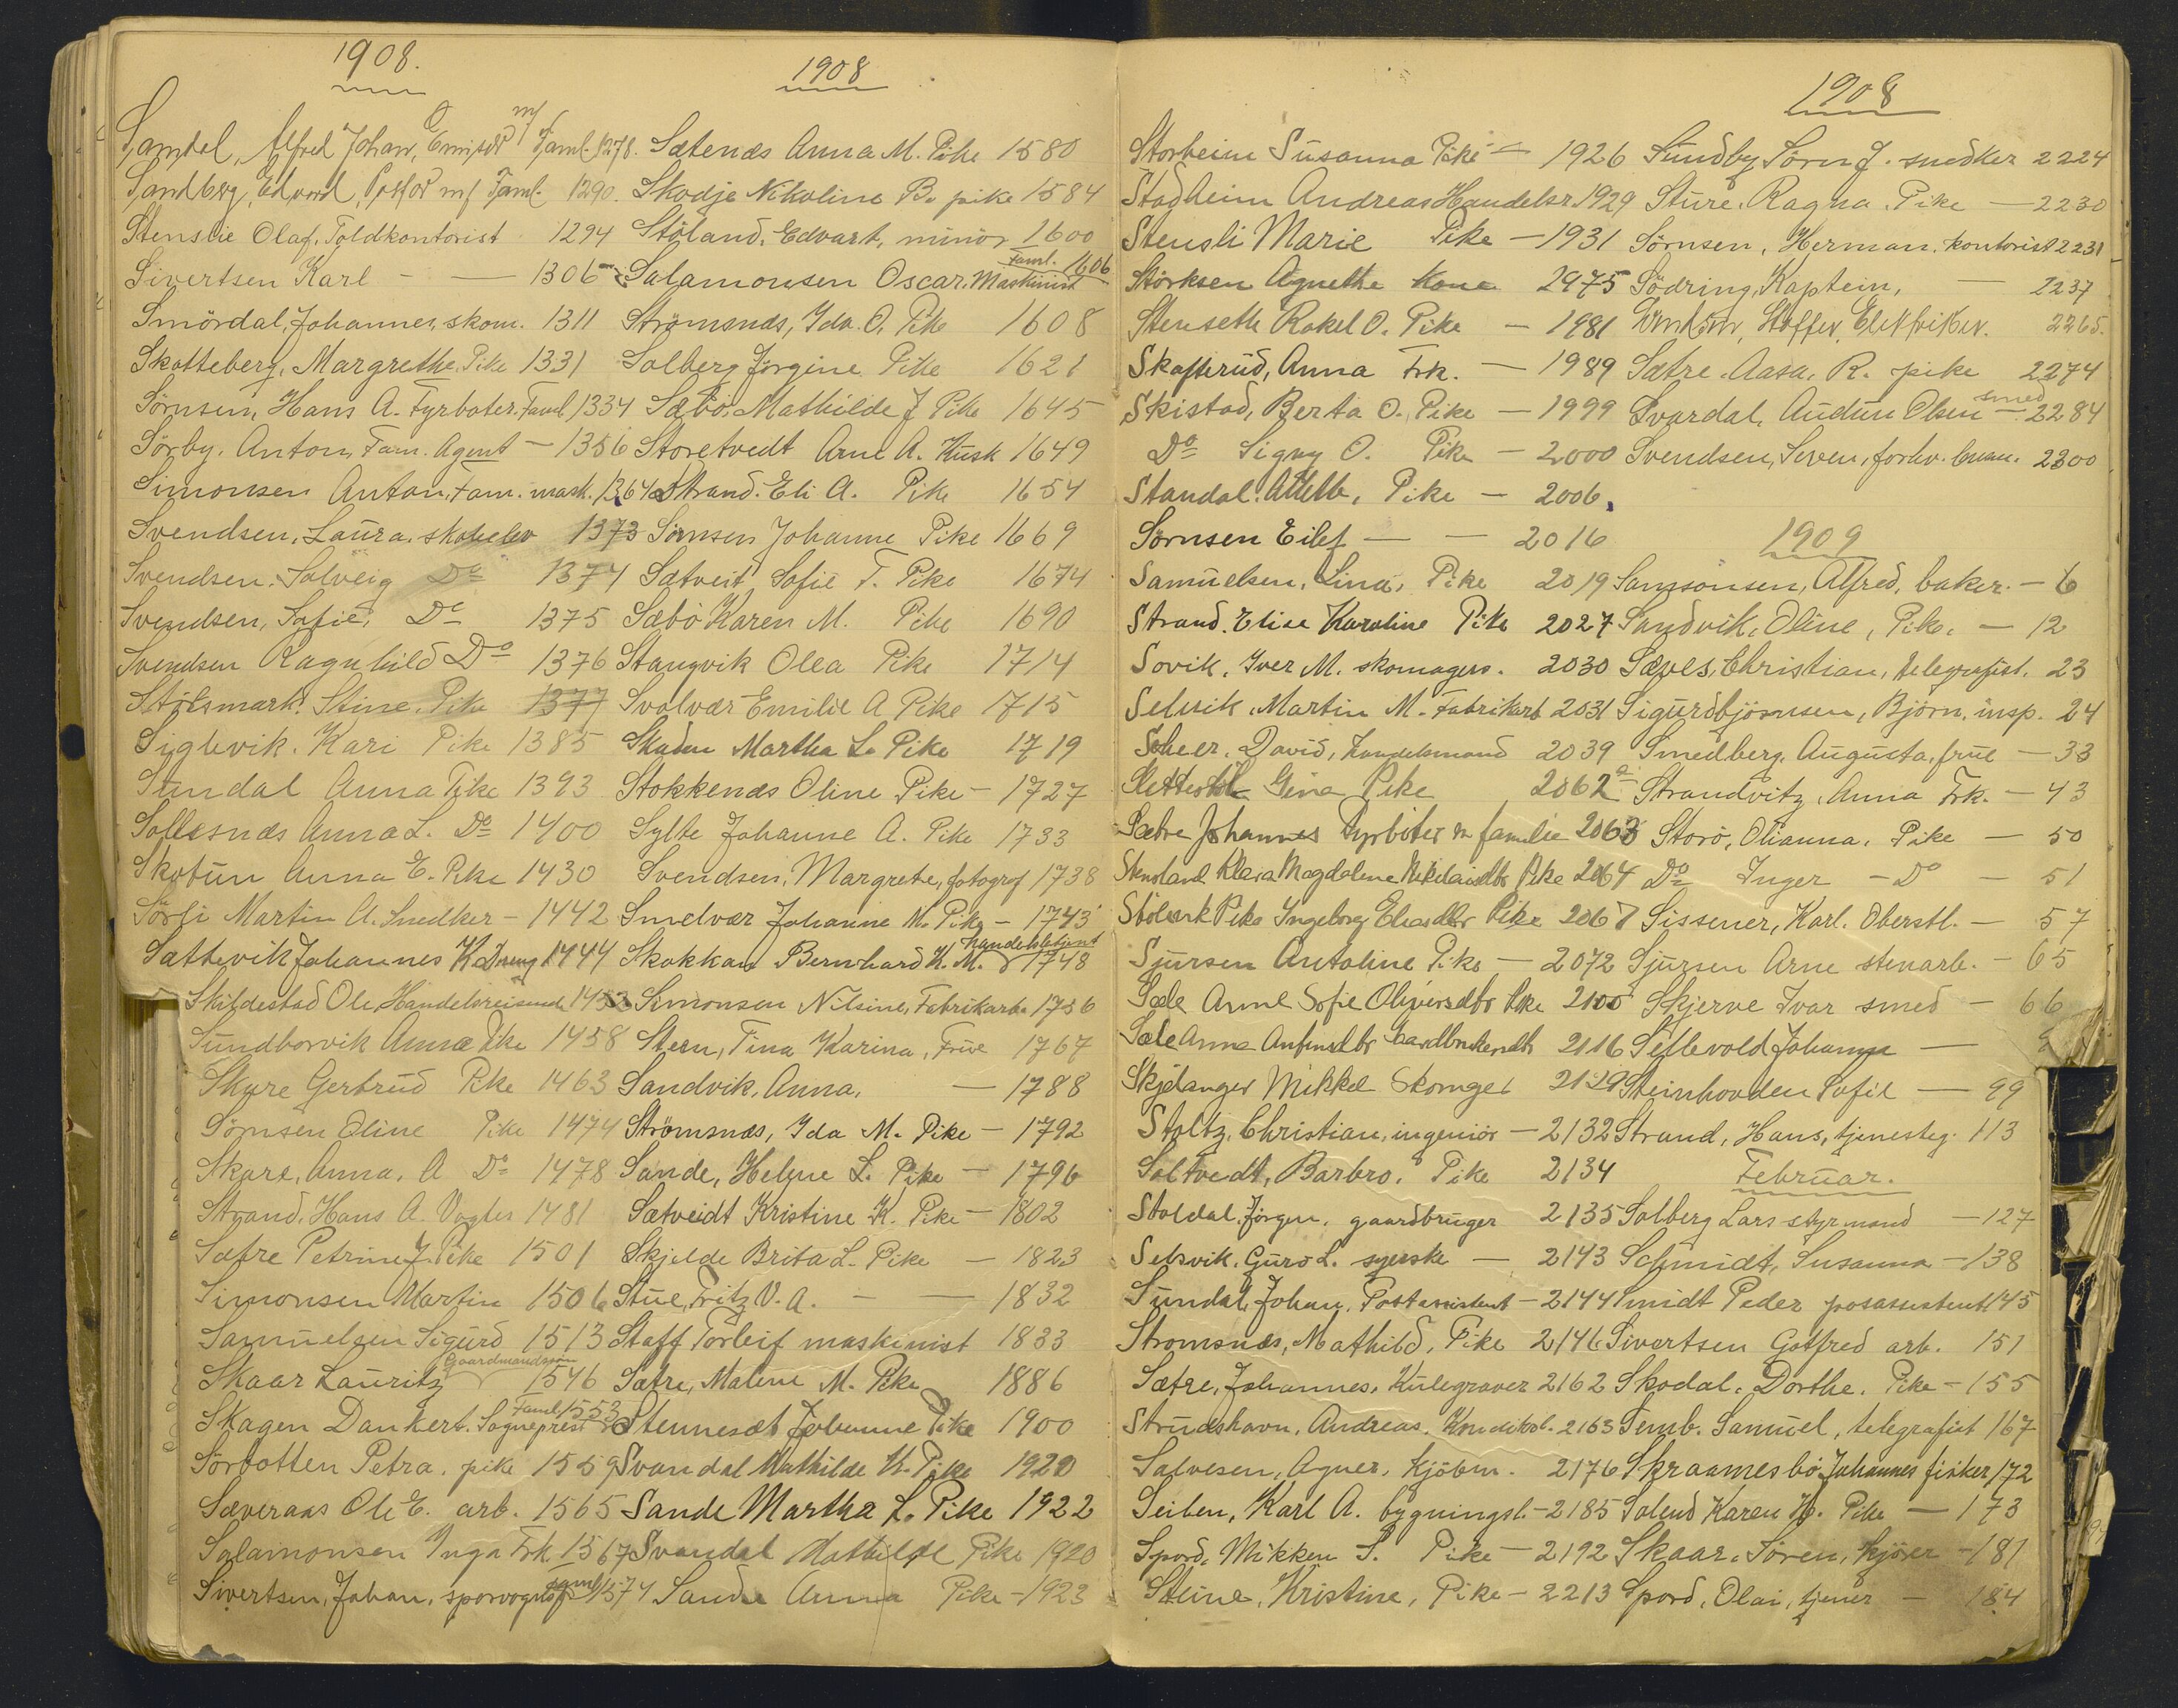 1908.
Samdal, Alfred Johan, Emisær m/ Faml. 1278.
Sandberg, Edvard, Postør m/ Faml. 1290.
Stenslie Olaf. Toldkontorist 1294
Sivertsen Karl - — 1306
Smördal, Johannes, skom. 1311
Skatteberg, Margrethe. Pike 1331
Sörnsen, Hans A. Fyrböter. Faml. 1334
Sörby. Anton, Fam. Agent — 1356
Simonsen Anton, Fam. mask. 1364
Svendsen, Laura. skoleelev 1373
Svendsen. Solveig Do 1374
Svendsen, Sofie, Do 1375
Svendsen Ragnhild Do 1376
Stölsmark. Stine. Pike 1377
Siglevik. Kari Pike 1385
Sundal Anna Pike 1393
Sollesnæs Anna L. Do 1400
Skotun Anna E. Pike 1430
Sörli Martin A. Snedker - 1442
Sættevik Johannes K. 1444
Skildestad Ole, Handelsreisende 1453
Sundborvik Anna Pike 1458
Skyre Gertrud Pike 1463
Sörnsen Oline Pike 1474
Skare, Anna. A Do 1478
Strand. Hans A. Vogter 1481
Sætre Petrine J. Pike 1501
Simonsen Martin 1506
Samuelsen Sigurd 1513
Skaar Lauritz Gaardmandssøn 1546
Skagen Dankert. Sogneprest Faml. 1553
Sörbotten Petra. pike 1559
Sæveraas Ole E. arb. 1565
Salamonsen Inga Frk. 1567
Sivertsen, Johan, sporvogns Faml 1574
1908
Sætenæs Anna M. Pike 1580
Skodje Nikoline B. pike 1584
Stöland. Edvart, minör 1600
Salamonsen Oscar. Maskinist Faml. 1606
Strömsnæs, Ida. O. Pike 1608
Solberg Jörgine Pike 1621
Sæbö. Mathilde J Pike 1645
Storetvedt Arne A. Kusk 1649
Strand. Eli A. Pike 1654
Sörnsen Johanne Pike 1669
Sætveit, Sofie T. Pike 1674
Sæbö Karen M. Pike 1690
Stangvik Olea Pike 1714
Svolvær Emilie A Pike 1715
Skaden Martha L. Pike 1719
Stokkenæs Oline Pike - 1727
Sylte Johanne A. Pike 1733
Svendsen, Margrete, fotograf 1738
Smelvær Johanne M. Pike - 1743
Skokkan Bernhard K. M. handelsbetjent 1748
Simonsen Nilsine, Fabrikarb. 1756
Steen, Tina Karina, Frue 1767
Sandvik, Anna, — 1788
Strömsnæs, Ida M. Pike - 1792
Sande, Helene L. Pike - 1796
Sætveidt Kristine K. Pike - 1802
Skjelde Brita L. Pike — 1823
Stue, Fritz V. A. - — 1832
Staff Torleif maskinist 1833
Sætre, Malene M. Pike 1886
Stennesæt Johanne Pike 1900
Svandal Mathilde K. Pike 1920
Sande Martha L. Pike 1922
Svandal Mathilde Pike 1920
Sande Anna Pike - 1923
Storheim Susanna Pike - 1926
Stadheim Andreas Handelsr. 1929
Stensli Marie Pike - 1931
Störksen Agnethe Kone 2975
Stenseth Rakel O. Pike - 1981
Skafterud, Anna Frk. - 1989
Skistad, Berta O. Pike - 1999
Do Signy O. Pike - 2000
Standal. Pike - 2006.
Sörnsen Eilef — - 2016
Samuelsen, Lina, Pike 2019
Strand. Elise Karoline Pike 2027
Sovik, Iver M. skomagers. 2030
Selvik, Martin M. Fabrikarb 2031
Scheer. David, handelsmand 2039
Gina Pike 2062 a
Sætre Johannes Fyrböter m familie 2063
Klara Magdalene Nikolaidtr Pike 2064
Pike Ingeborg Eliasdtr Pike 2067
Sjursen Antoline Pike — 2072
Sæle Anne Sofie Oliversdtr Pike 2100
Sæle Anna 2116
Skjelanger Mikkel Skomger 2129
Stoltz, Christian, ingeniör - 2132
Soltvedt, Barbro, Pike 2134
Stoldal, Jörgen, gaardbruger 2135
Selsvik, Guro L. syerske — 2143
Sundal, Johan, Postassistent - 2144
Stromsnæs, Mathild, Pike 2146
Sætre, Johannes, Kulegraver 2162
Strudshavn, Andreas, Konditor. 2163
Salvesen, Agner, kjöbm. 2176
Seiben, Karl A. bygningsl. - 2185
Spord, Mikken S. Pike - 2192
Steine, Kristine, Pike - 2213
1908
Sundby Sörn J. snedker 2224
Sture. Ragna. Pike — 2230
Sörnsen, Herman. kontorist 2231
Södring, Kaptein, — 2237
Staffen, Elektriker. 2265.
Sætre. Aasa. R. pike 2274
Svardal, Audun Olsen smed — 2284
Svendsen, Seven, forhv. 2300
1909
Samsonsen, Alfred, baker. - 6
Sandvik, Oline, Pike. - 12
Sæves, Christian, telegrafist. 23
Sigurdbjörnsen, Björn, insp. 24
Smedberg, Augusta, frue — 33
Strandvitz, Anna Frk. - 43
Storö, Olianna. Pike — 50
Do Inger - Do - 51
Sissener, Karl. Oberstl. - 57
Sjursen Arne stenarb. - 65
Skjerve Ivar smed - 66
Sellevold Johanna —
Steinhovden Sofie — 99
Strand, Hans, tjenesteg. 113
Februar.
Solberg Lars styrmand — 127
Schmidt, Susanna - 138
Smidt Peder posassistent 145
Sivertsen Gotfred arb. 151
Skodal. Dorthe. Pike - 155
Semb. Samuel, telegrafist 167
Skraamesbö Johannes fisker 172
Solend Karen H. Pike — 173
Skaar. Sören, kjörer - 181
Spord, Olai, tjener - 184